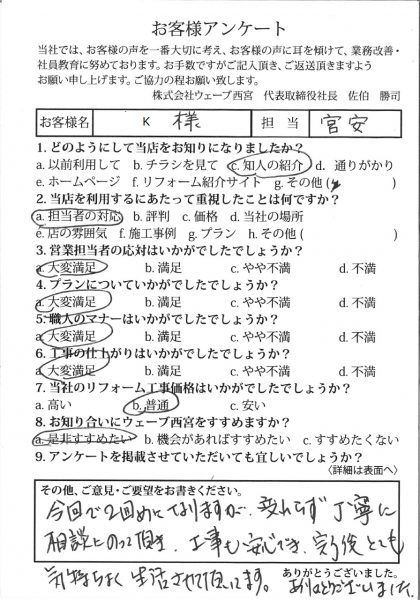 お客様アンケート
当社では、お客様の声を一番大切に考え、お客様の声に耳を傾けて、業務改善・
社員教育に努めております。お手数ですがご記入頂き、ご返送頂きますよう
お願い申し上げます。ご協力の程お願い致します。
株式会社ウェーブ西宮 代表取締役社長 佐伯 勝司
お客様名 K 様 担当 官安
1. どのようにして当店をお知りになりましたか?
a. 以前利用して b. チラシを見て c. 知人の紹介 d. 通りがかり
e. ホームページ f. リフォーム紹介サイト g. その他 ( )
2. 当店を利用するにあたって重視したことは何ですか?
a. 担当者の対応 b. 評判 c. 価格 d. 当社の場所
e. 店の雰囲気 f. 施工事例 g. プラン h. その他 ( )
3. 営業担当者の応対はいかがでしたでしょうか?
a. 大変満足 b. 満足 c. やや不満 d. 不満
4. プランについていかがでしたでしょうか?
a. 大変満足 b. 満足 c. やや不満 d. 不満
5. 職人のマナーはいかがでしたでしょうか?
a. 大変満足 b. 満足 c. やや不満 d. 不満
6. 工事の仕上がりはいかがでしたでしょうか?
a. 大変満足 b. 満足 c. やや不満 d. 不満
7. 当社のリフォーム工事価格はいかがでしたでしょうか?
a. 高い b. 普通 c. 安い
8. お知り合いにウェーブ西宮をすすめますか?
a. 是非すすめたい b. 機会があればすすめたい c. すすめたくない
9. アンケートを掲載させていただいても宜しいでしょうか?
〈詳細は表面へ〉
その他、ご意見・ご要望をお書きください。
今回で2回めとなりますが、変わらず丁寧に
相談にのって頂き、工事も安心でき、完了後とても
気持ちよく生活させて頂いてます。
ありがとうございました。
ありがとうございました